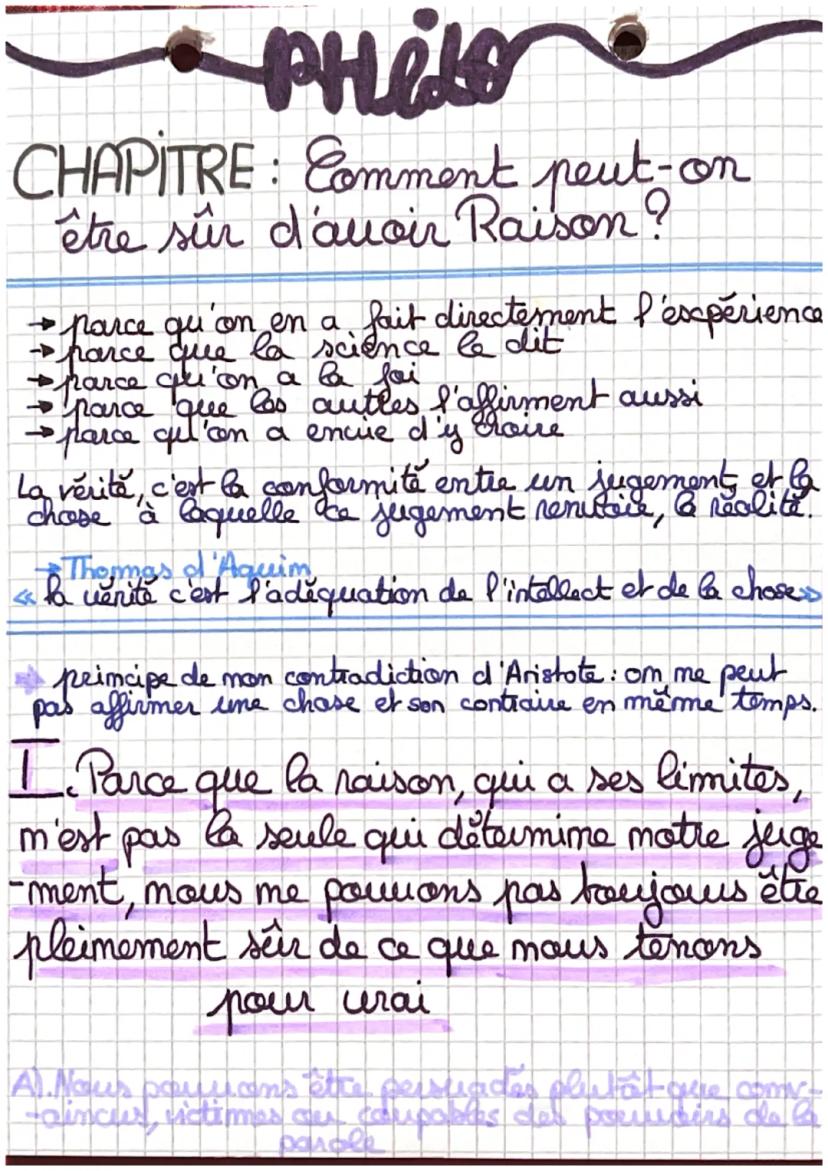 PHilo
CHAPITRE : Comment peut-on
être sûr d'avoir Raison ?
→ parce qu'on en a fait directement l'expérience
→ parce que la science le dit
→ parce qu'on a la foi
→ parce que les autres l'affirment aussi
→ parce qu'on a envie d'y croire
La vérité, c'est la conformité entre un jugement, et la
chose à laquelle ce jugement renvoie, la réalité.
→ Thomas d'Aquin
« la vérité c'est l'adéquation de l'intellect et de la chose »
→ principe de non contradiction d'Aristote : on ne peut
pas affirmer une chose et son contraire en même temps.
I. Parce que la raison, qui a ses limites,
n'est pas la seule qui détermine notre juge
-ment, nous ne pouvons pas toujours être
pleinement sûr de ce que nous tenons
pour vrai
A). Nous pouvons être persuadés plutôt que conv-
-aincus, victimes ou coupables des pouvoirs de la
parole